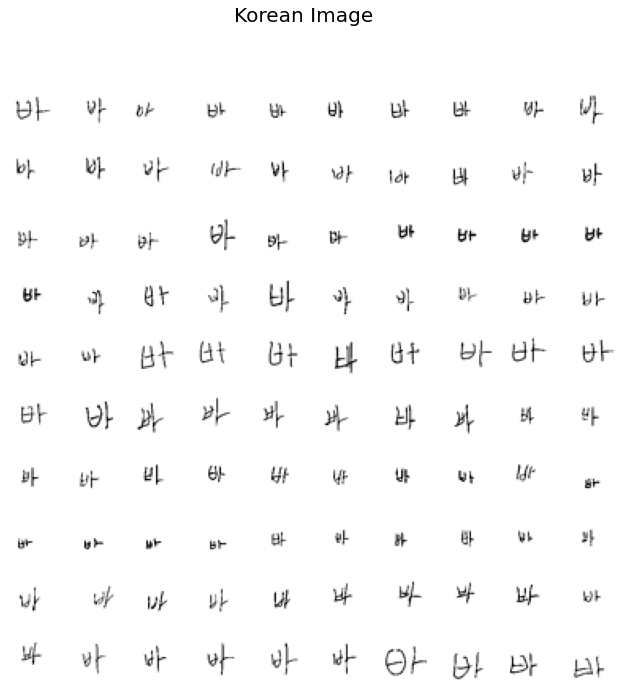 Korean Image
바 바 바 바 바 바 바 바 바 바
바 바 바 바 바 바 바 바 바 바
바 바 바 바 바 바 바 바 바 바
바 바 바 바 바 바 바 바 바 바
바 바 바 바 바 바 바 바 바 바
바 바 바 바 바 바 바 바 바 바
바 바 바 바 바 바 바 바 바 바
바 바 바 바 바 바 바 바 바 바
바 바 바 바 바 바 바 바 바 바
바 바 바 바 바 바 바 바 바 바